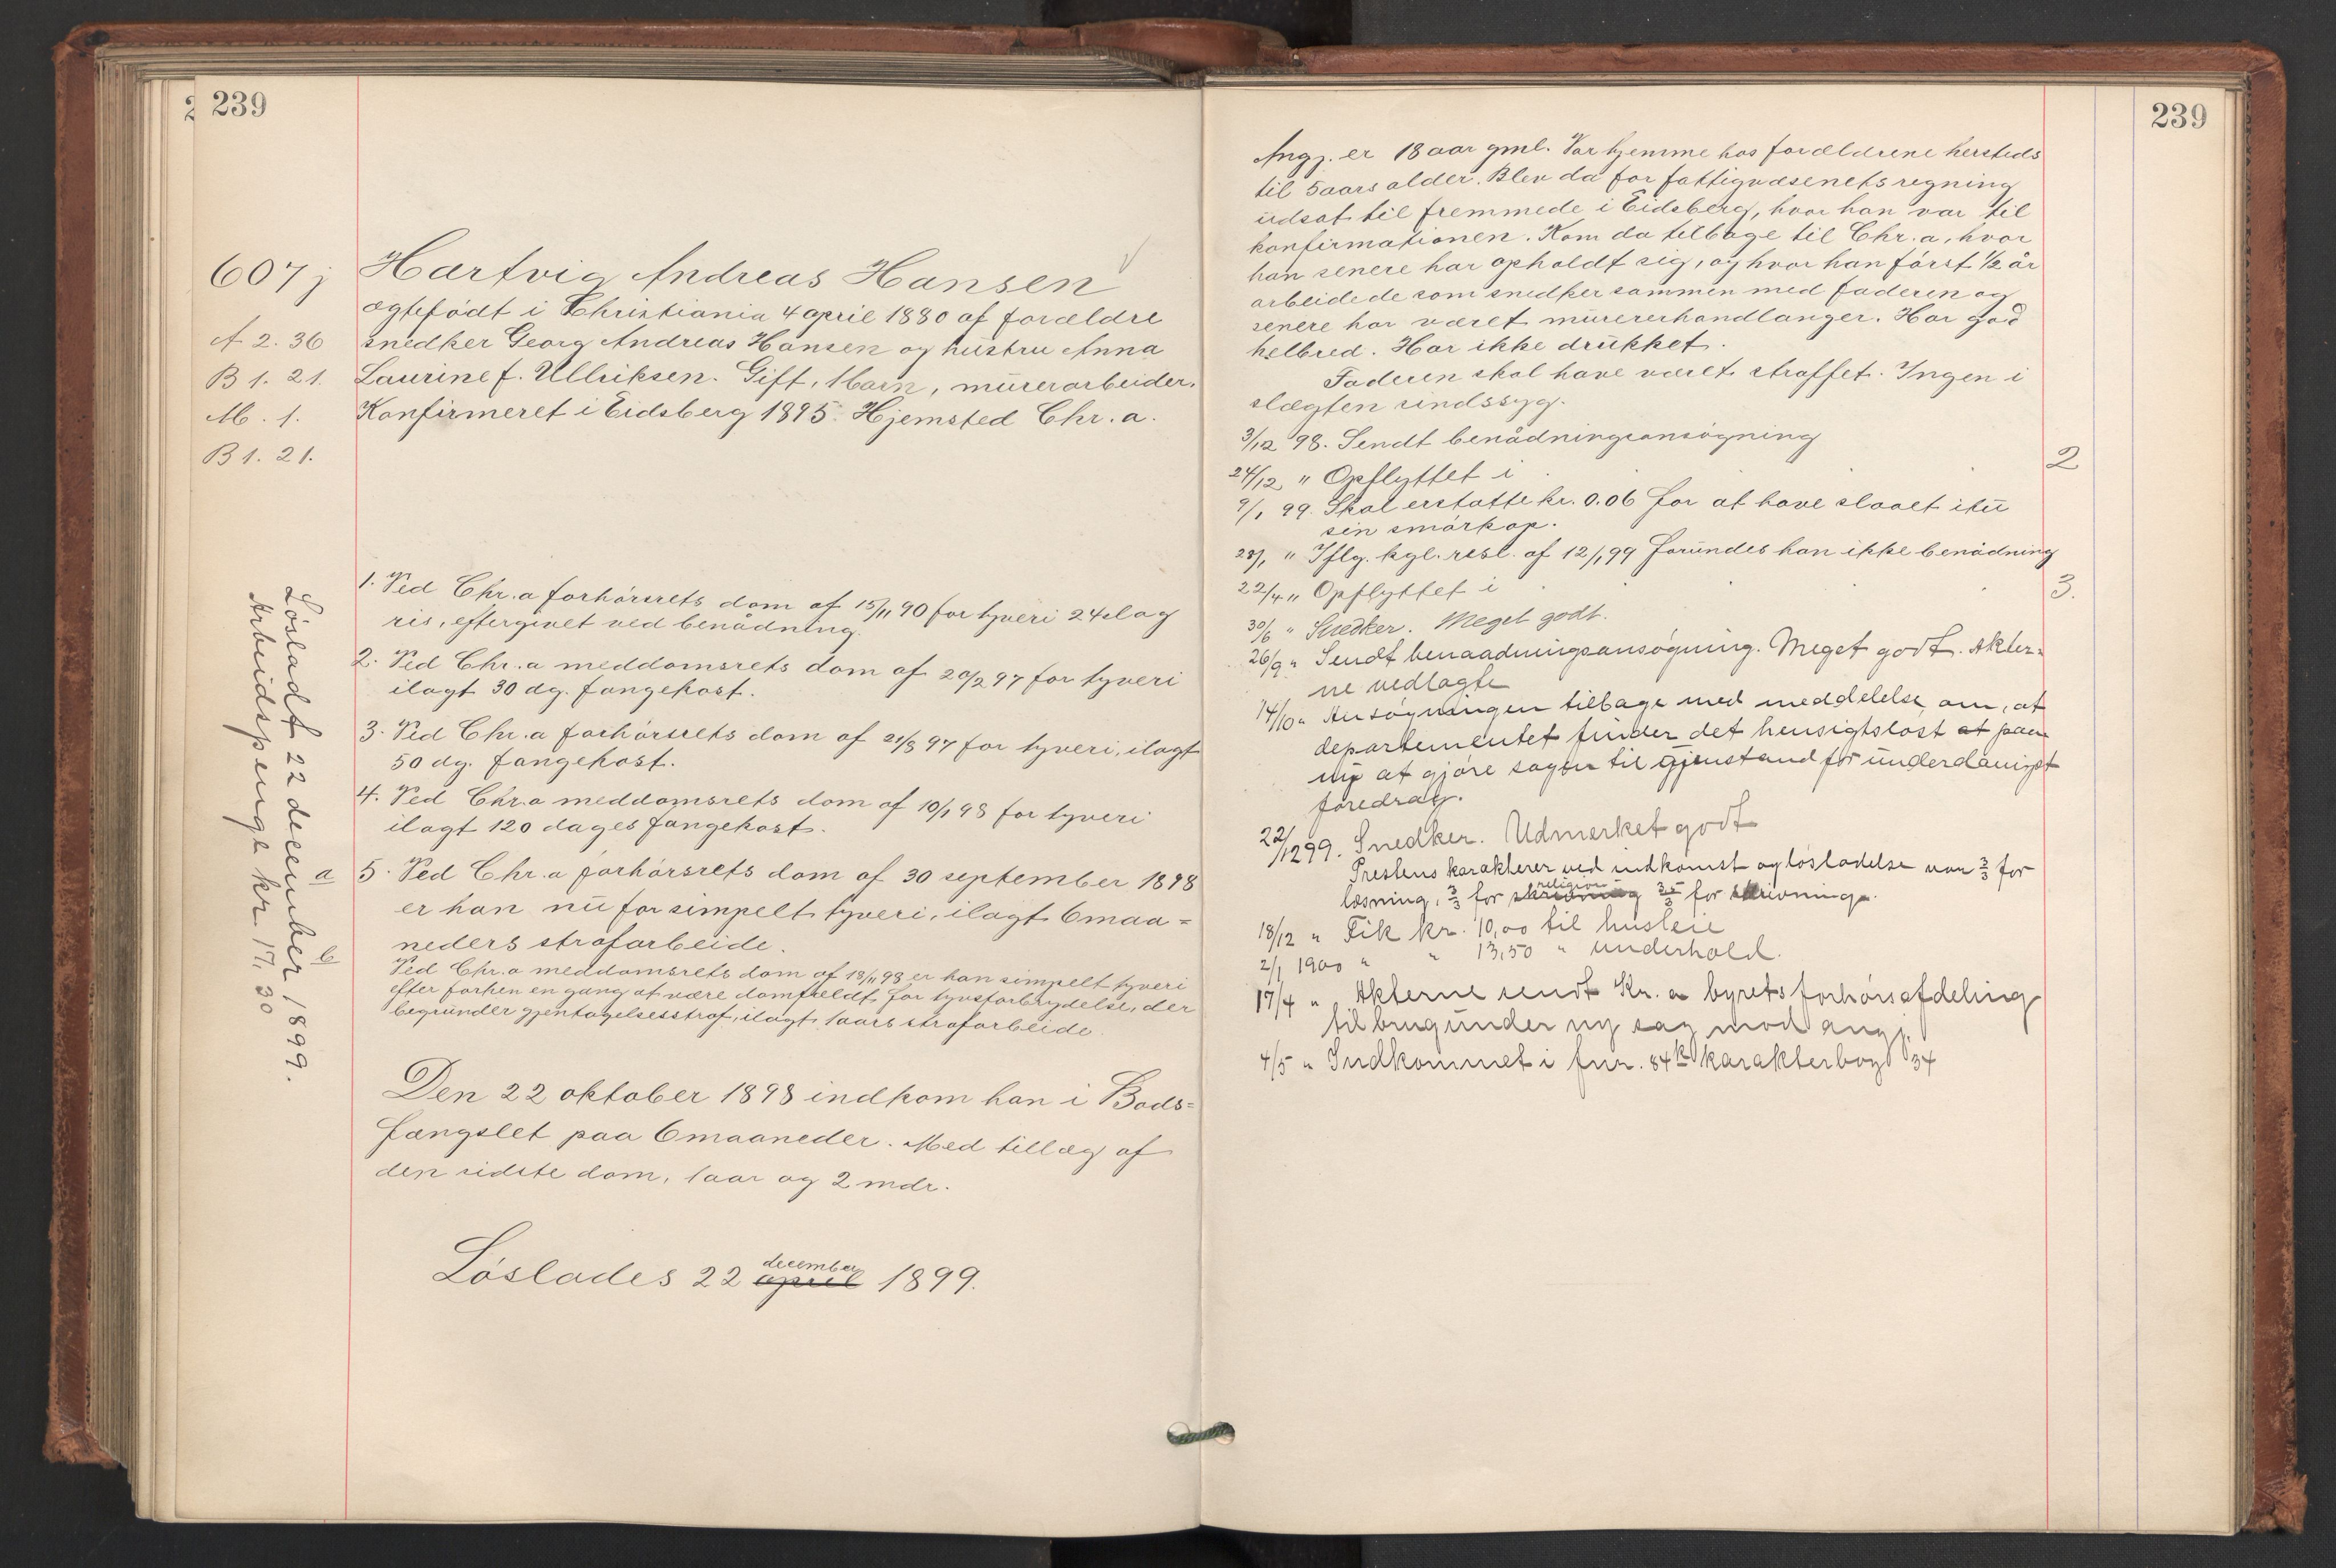 239
607 j
A 2. 36
B 1. 21.
M. 1.
B 1. 21.
Løsladt 22 december 1899.
Arbeidspenge kr. 17,30
Hartvig Andreas Hansen
ægtefødt i Christiania 4 april 1880 af forældre
snedker Georg Andreas Hansen og hustru Anna
Laurine f. Ullriksen. Gift, 1 barn, murerarbeider.
Konfirmeret i Eidsberg 1895. Hjemsted Chr.a.
1. Ved Chr.a forhørsrets dom af 15/11 90 for tyveri 24 slag
ris, eftergivet ved benådning.
2. Ved Chr.a meddomsrets dom af 20/2 97 for tyveri
ilagt 30 dg. fangekost.
3. Ved Chr.a forhørsrets dom af 21/8 97 for tyveri, ilagt
50 dg. fangekost.
4. Ved Chr.a meddomsrets dom af 10/1 98 for tyveri
ilagt 120 dages fangekost.
a 5. Ved Chr.a forhørsrets dom af 30 september 1898
er han nu for simpelt tyveri, ilagt 6 maa=
neders strafarbeide.
b Ved Chr.a meddomsrets dom af 18/11 98 er han simpelt tyveri
efter forhen en gang at være domfældt for tyvsforbrydelse, der
begrunder gjentagelsesstraf, ilagt 1 aars strafarbeide.
Den 22 oktober 1898 indkom han i Bods=
fængslet paa 6 maaneder. Med tillæg af
den sidste dom, 1 aar og 2 mdr.
december
Løslades 22 april 1899.
239
Angj. er 18 aar gml. Var hjemme hos forældrene hersteds
til 5 aars alder. Blev da for fattigvæsenets regning
udsat til fremmede i Eidsberg, hvor han var til
konfirmationen. Kom da tilbage til Chr.a, hvor
han senere har opholdt sig, og hvor han først 1/2 år
arbeidede som snedker sammen med faderen og
senere har været murerhandlanger. Har god
helbred. Har ikke drukket.
Faderen skal have været straffet. Ingen i
slægten sindssyg.
3/12 98. Sendt benådningsansøgning
24/12 " Opflyttet i 2
9/1 99. Skal erstatte kr. 0.06 for at have slaaet itu
sin smørkop.
28/1 " Iflg. kgl. resl. af 12/1 99 forundes han ikke benådning
22/4 " Opflyttet i 3.
30/6 " Snedker. Meget godt.
26/9 " Sendt benaadningsansøgning. Meget godt. Akter=
ne vedlagte
14/10 " Ansøgningen tilbage med meddelelse om, at
departementet finder det hensigtsløst at paa
ny at gjøre sagen til gjenstand for underdanigst
foredrag.
22/12 99. Snedker. Udmerket godt
Prestens karakterer ved indkomst og løsladelse var 3/3 for
religion
læsning, 3/3 for skrivning 3,5/3 for skrivning.
18/12 " Fik kr. 10,00 til husleie
2/1 1900 " " 13,50 " underhold.
17/4 " Akterne sendt Kr.a byrets forhørsafdeling
til brug under ny sag mod angj.
4/5 " Indkommet i fnr. 84 k karakterbog 34